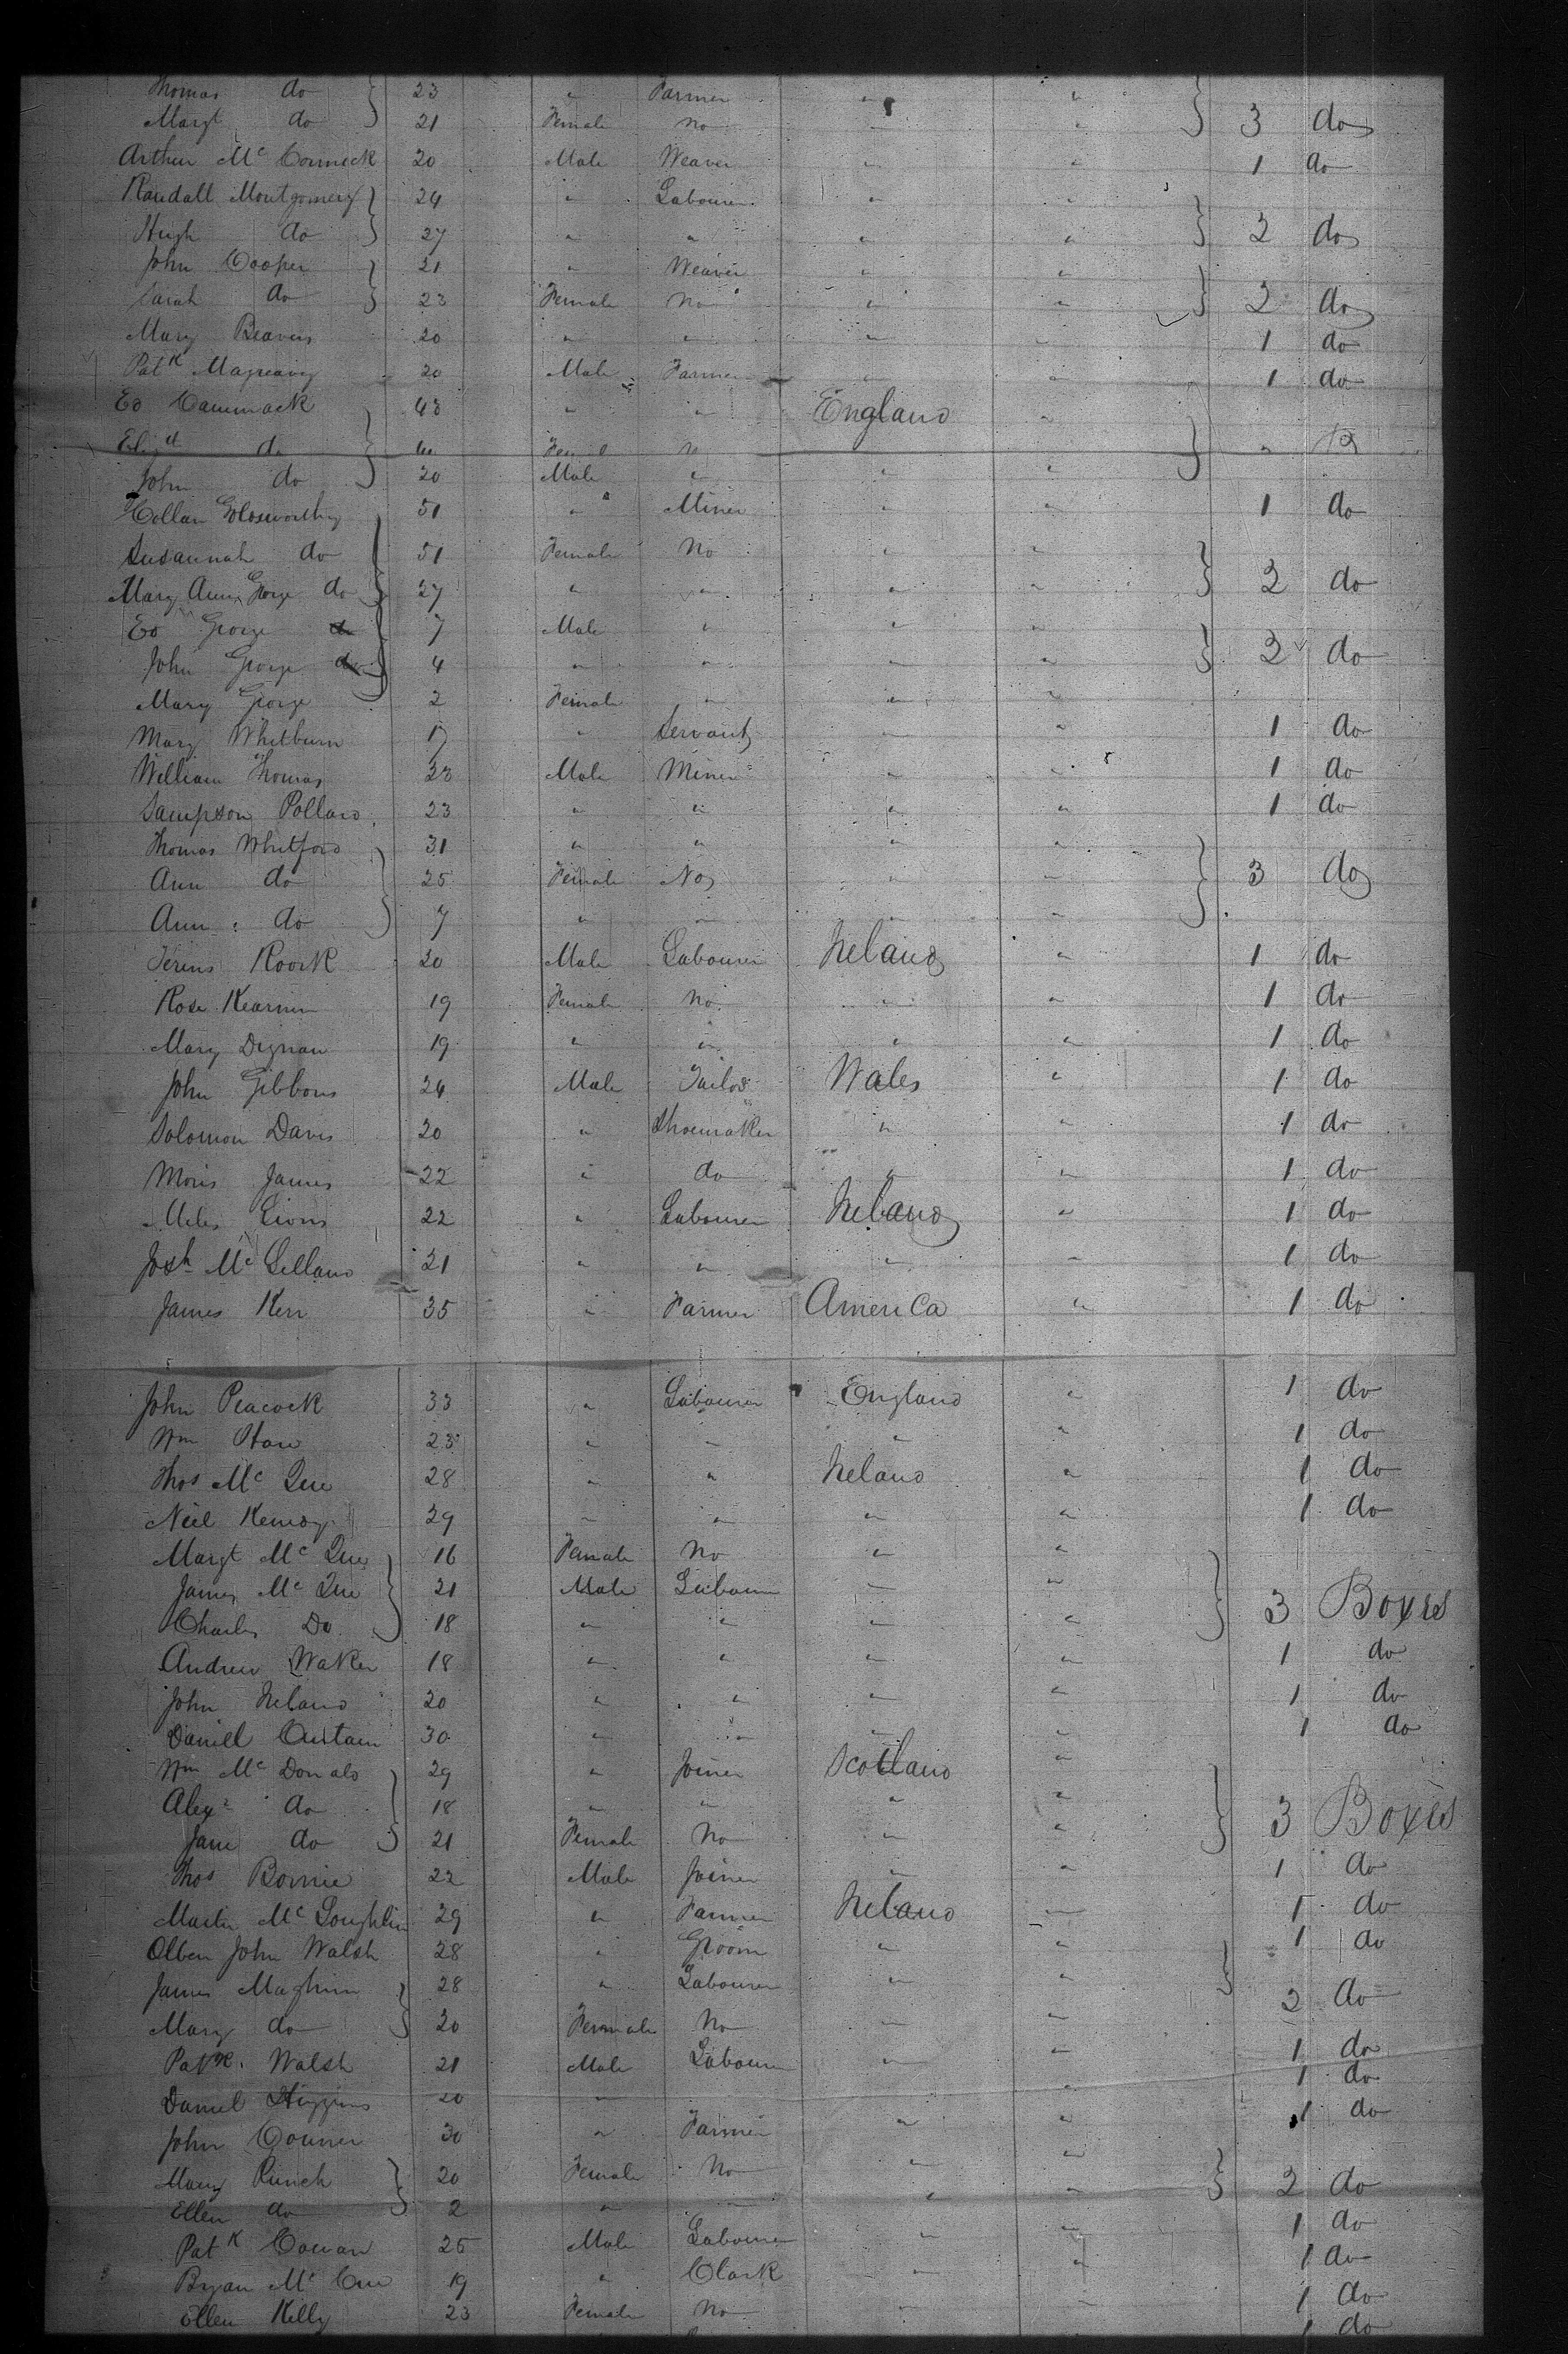 Thomas do 23 " Farmer " "
Margt do 21 Female No " " 3 do
Arthur Mc Cormick 20 Male Weaver " " 1 do
Randall Montgomery 24 " Labourer " "
Hugh do 27 " " " " 2 do
John Cooper 21 " Weaver " "
Sarah do 23 Female No " " 2 do
Mary Beavers 20 " " " " 1 do
Patk 20 Male Farmer " " 1 do
Ed Cammack 48 " " England "
Elizth do Female
John do 20 Male " " "
Goldsworthy 51 " Miner " " 1 do
Susannah do 51 Female No " "
Mary Ann George do 27 " " " " 2 do
Ed George do 7 Male " " "
John George do 4 " " " " 2 do
Mary George 2 Female " " "
Mary Whitburn 17 " Servant " " 1 do
William Thomas 23 Male Miner " " 1 do
Sampson Pollard 23 " " " " 1 do
Thomas Whitford 31 " " " "
Ann do 25 Female No " " 3 do
Ann do 7 " " " "
Terens Roork 30 Male Labourer Ireland " 1 do
Rose Kearnen 19 Female No " " 1 do
Mary Dignan 19 " " " " 1 do
John Gibbons 24 Male Tailor Wales " 1 do
Solomon Davis 20 " Shoemaker " " 1 do
Moris James 22 " do " " 1 do
Miles Lions 22 " Labourer Ireland " 1 do
Josh Mc Lelland 21 " " " " 1 do
James Kerr 35 " Farmer America " 1 do
John Peacock 33 " Labourer England " 1 do
Wm 23 " " " " 1 do
Thos Mc Que 28 " " Ireland " 1 do
Neil 29 " " " " 1 do
Margt Mc Que 16 Female No " "
James Mc Que 21 Male Labourer " " 3 Boxes
Charles Do 18 " " " "
Andrew Waker 18 " " " " 1 do
John Ireland 20 " " " " 1 do
Daniel 30 " " " " 1 do
Wm Mc Donald 29 " Joiner Scotland "
Alexr do 18 " " " " 3 Boxes
Jane do 21 Female No " "
Thos 22 Male Joiner " " 1 do
Martin Mc Loughlin 29 " Farmer Ireland " 1 do
John Walsh 28 " Groom " " 1 do
James 28 " Labourer " " 2 do
Mary do 20 Female No " "
Patk Walsh 21 Male Labourer " " 1 do
Daniel Higgins 20 " " 1 do
John Conner 30 " Farmer " " 1 do
Mary Runch 20 Female No " " 2 do
Ellen do 2 " " " "
Patk Cowan 25 Male Labourer " " 1 do
Bryan Mc Cue 19 " Clark " " 1 do
Ellen Kelly 23 Female No " " 1 do
1 do